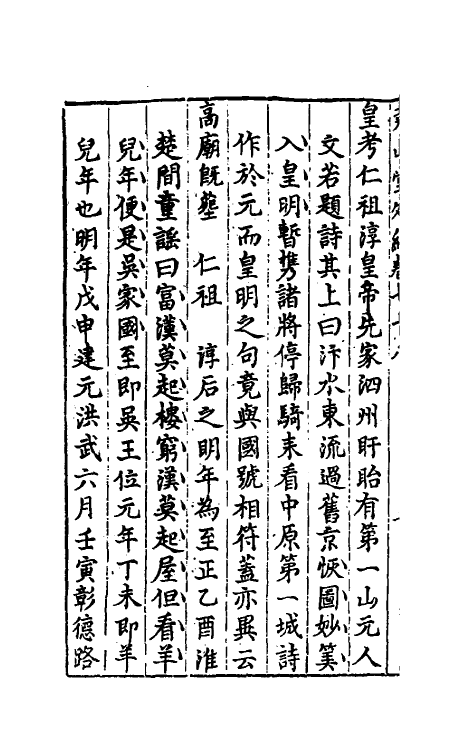 皇考仁祖淳皇帝先家泗州盱眙有第一山元人
文若題詩其上曰汴水東流過舊京恢圖妙筭
入皇明暫携諸將停歸騎来看中原第一城詩
作於元而皇明之句竟與國號相符蓋亦異云
高廟既塟　仁祖　淳后之明年為至正乙酉淮
楚間童謡曰富漢莫起楼窮漢莫起屋但看羊
兒年便是吳家國至即吳王位元年丁未即羊
兒年也明年戊申建元洪武六月壬寅彰德路